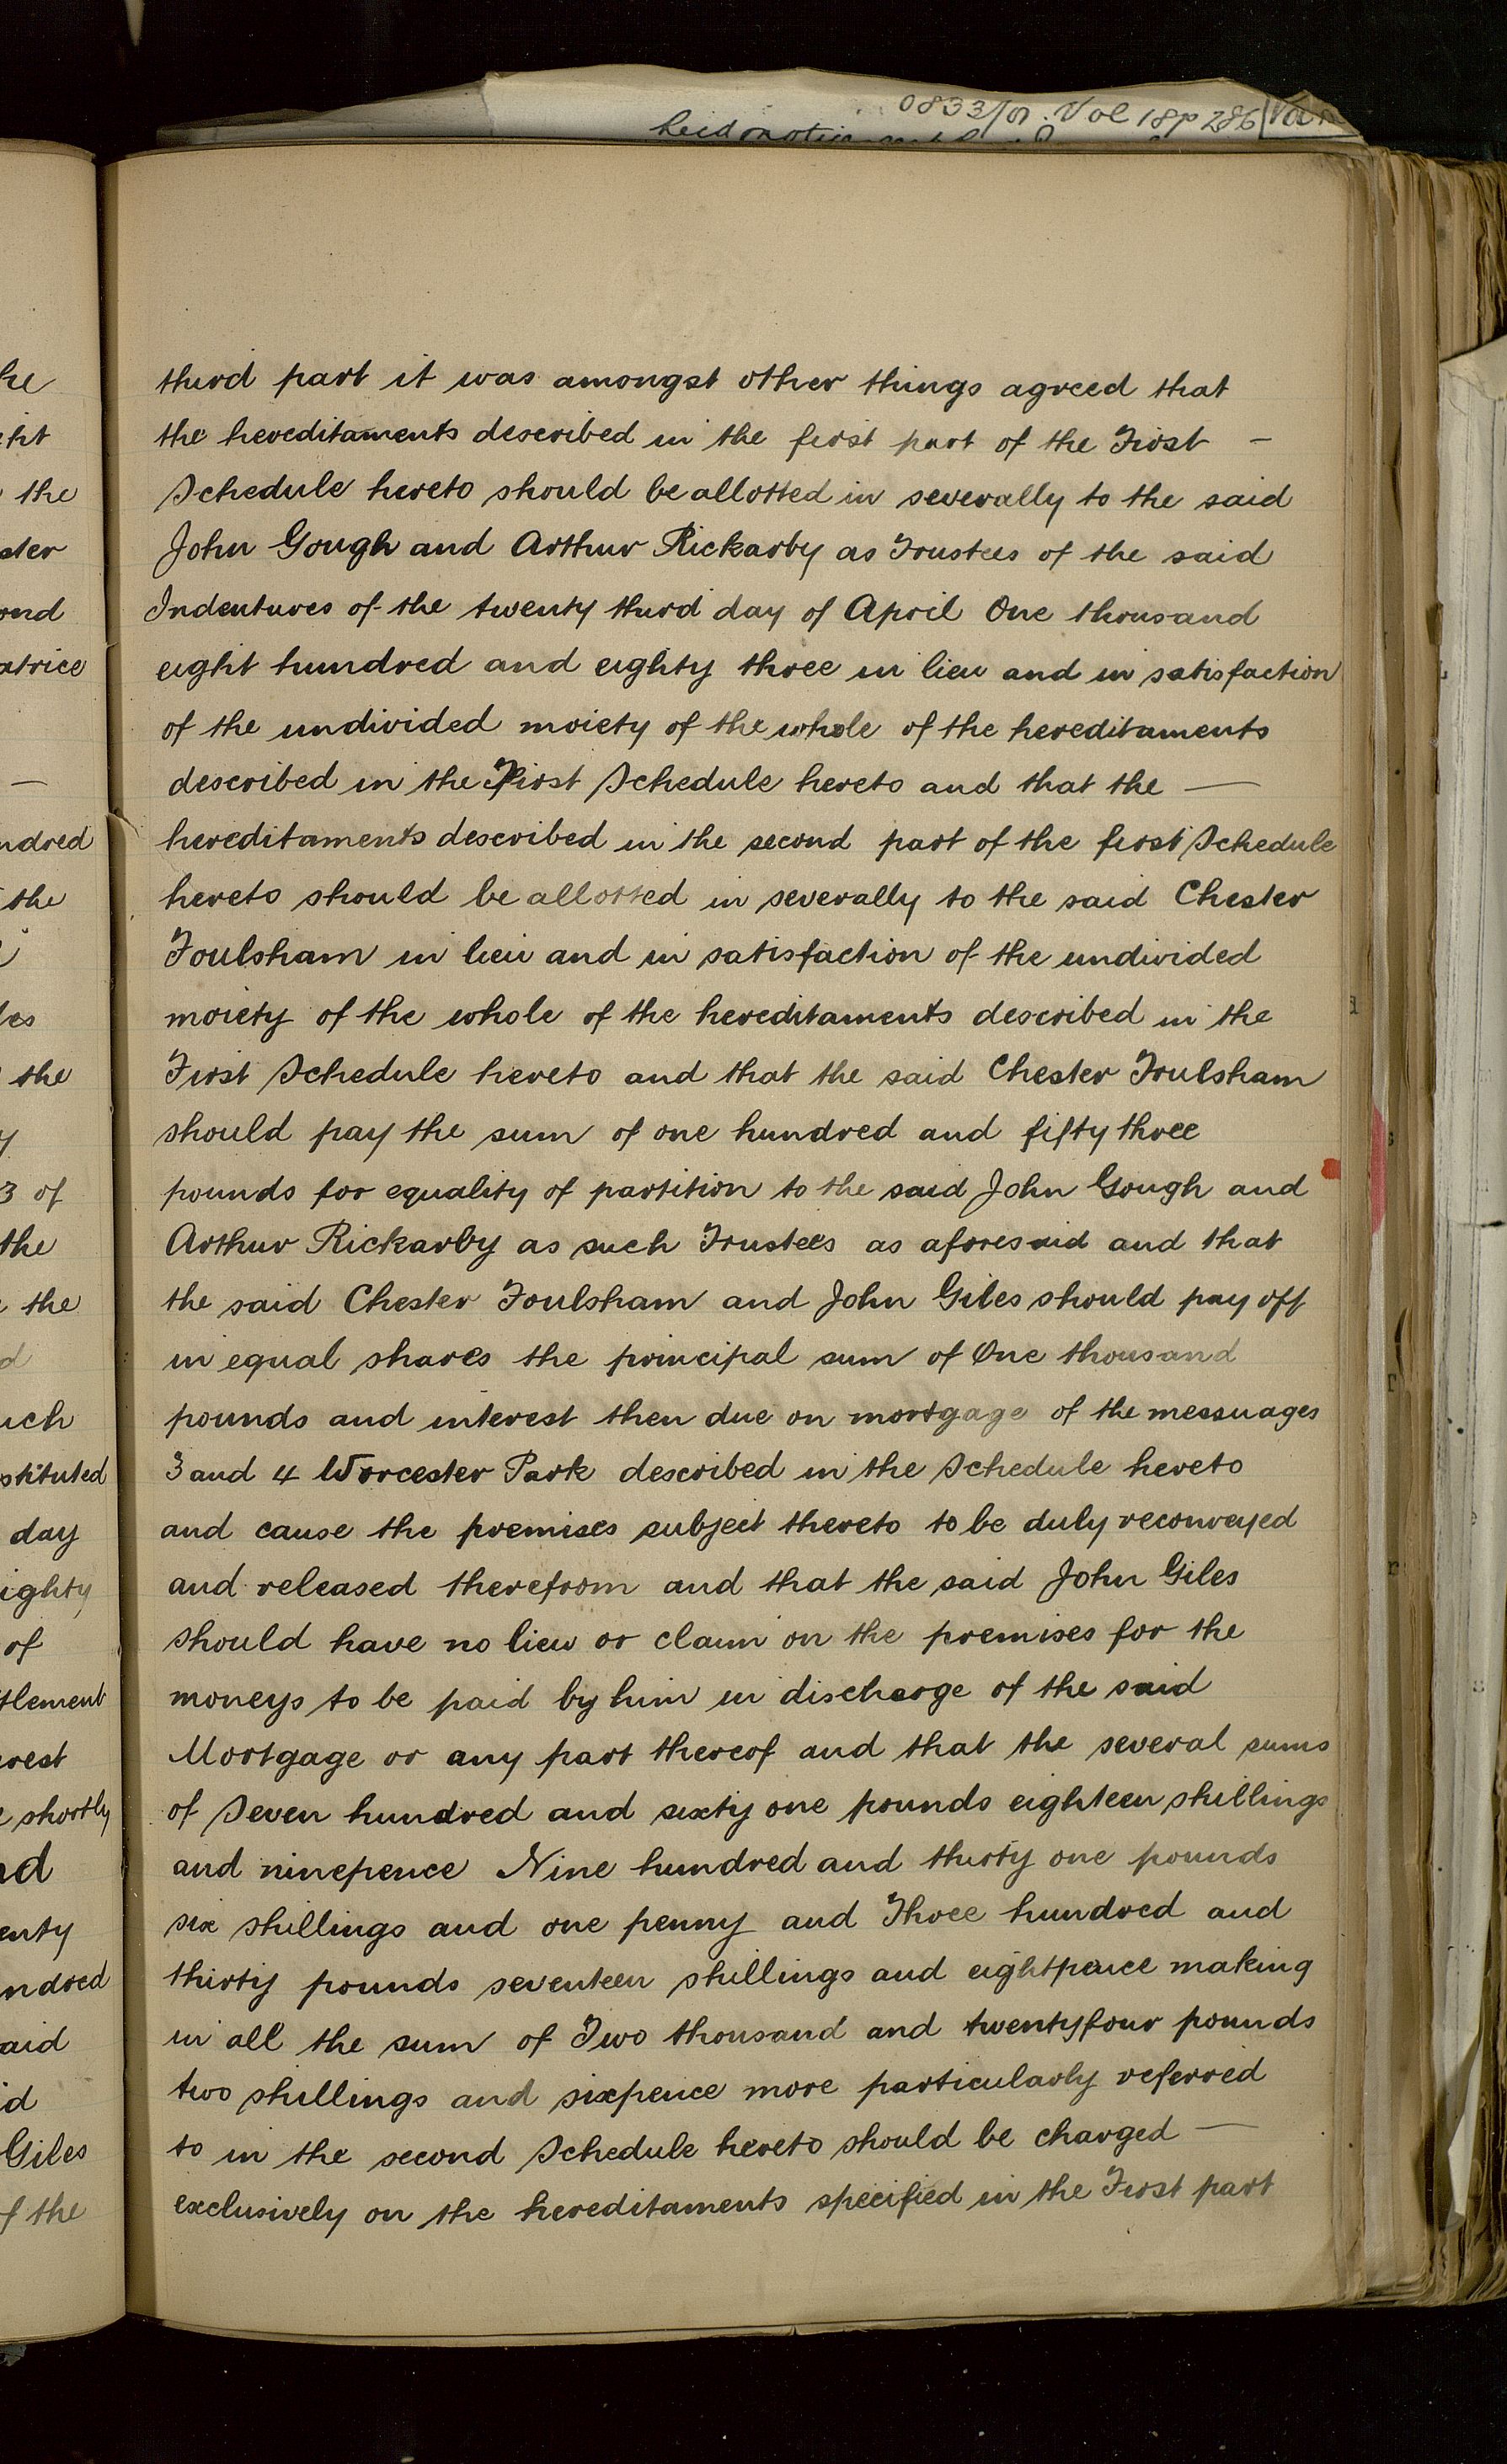 0833/01. Vol 18p 286
third part it was amongst other things agreed that
the hereditaments described in the first part of the First —
Schedule hereto should be allotted in severally to the said
John Gough and Arthur Rickarby as Trustees of the said
Indentures of the twenty third day of April One thousand
eight hundred and eighty three in lieu and in satisfaction
of the undivided moiety of the whole of the hereditaments
described in the First Schedule hereto and that the —
hereditaments described in the second part of the first Schedule
hereto should be allotted in severally to the said Chester
Foulsham in lieu and in satisfaction of the undivided
moiety of the whole of the hereditaments described in the
First Schedule hereto and that the said Chester Foulsham
should pay the sum of one hundred and fifty three
pounds for equality of partition to the said John Gough and
Arthur Rickarby as such Trustees as aforesaid and that
the said Chester Foulsham and John Giles should pay off
in equal shares the principal sum of One thousand
pounds and interest then due on mortgage of the messuages
3 and 4 Worcester Park described in the Schedule hereto
and cause the premises subject thereto to be duly reconveyed
and released therefrom and that the said John Giles
should have no lien or claim on the premises for the
moneys to be paid by him in discharge of the said
Mortgage or any part thereof and that the several sums
of Seven hundred and sixty one pounds eighteen shillings
and ninepence Nine hundred and thirty one pounds
six shillings and one penny and Three hundred and
thirty pounds seventeen shillings and eightpence making
in all the sum of Two thousand and twentyfour pounds
two shillings and sixpence more particularly referred
to in the second Schedule hereto should be charged —
exclusively on the hereditaments specified in the First part